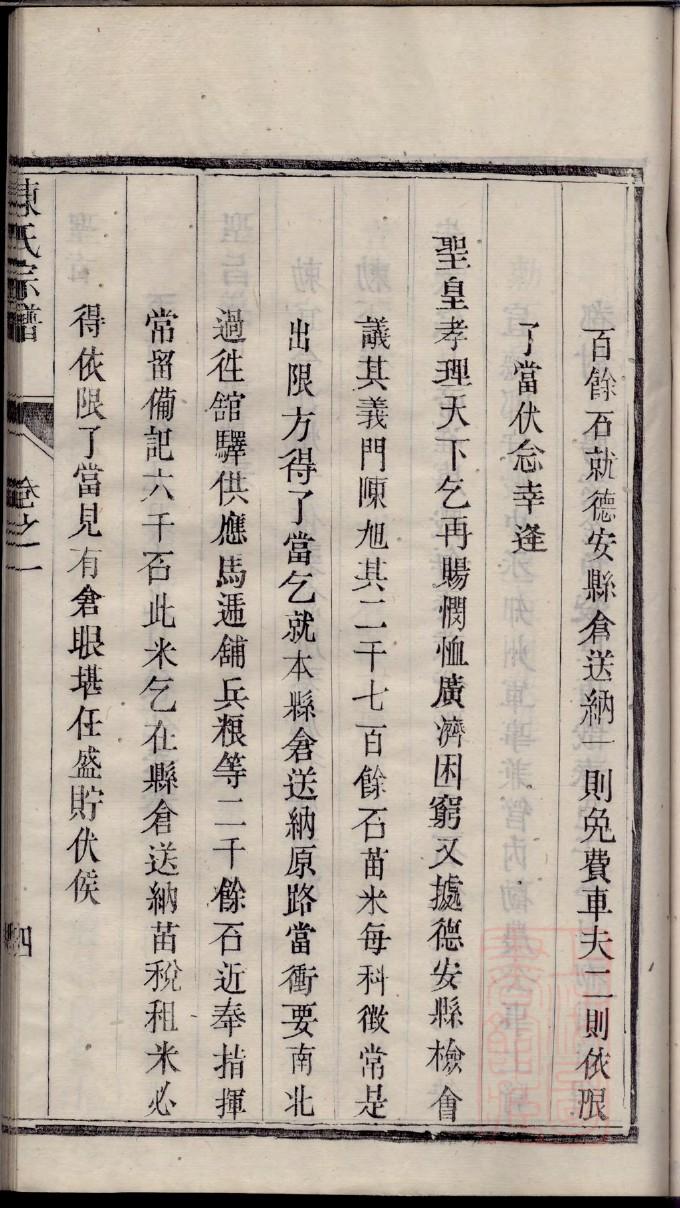 百餘石就德安縣倉送納一則免費車夫二則依限
了當伏念幸逢
聖皇孝理天下乞再賜憫恤廣濟困窮又據德安縣檢會
議其義門陳旭其二千七百餘石苗米每科徵常是
出限方得了當乞就本縣倉送納原路當衝要南北
過徃舘驛供應馬遞舖兵粮等二千餘石近奉指揮
常留備記六千石此米乞在縣倉送納苗稅租米必
得依限了當見有倉眼堪任盛貯伏候
陳氏宗譜
卷之二
四